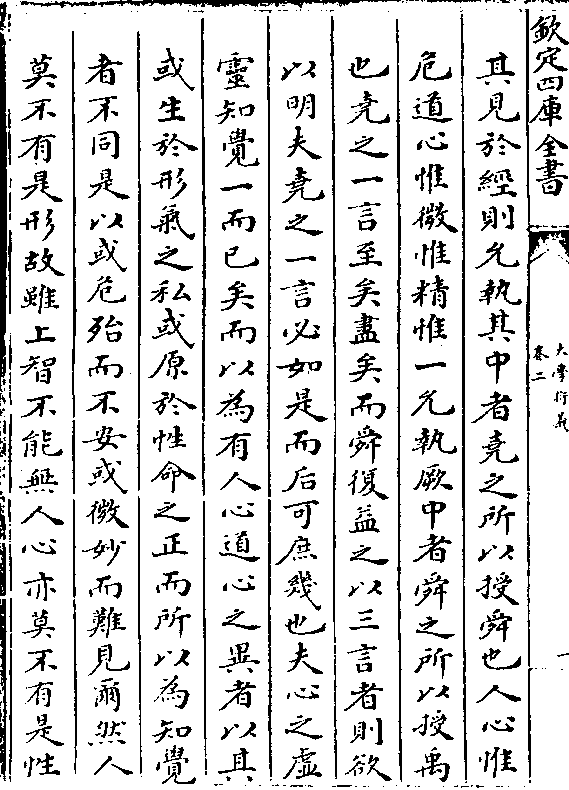 欽定四庫全書
大學衍義
卷二
一
其見於經則允執其中者堯之所以授舜也人心惟
危道心惟微惟精惟一允執厥中者舜之所以授禹
也堯之一言至矣盡矣而舜復益之以三言者則欲
以明夫堯之一言必如是而后可庶幾也夫心之虚
靈知覺一而已矣而以為有人心道心之異者以其
或生於形氣之私或原於性命之正而所以為知覺
者不同是以或危殆而不安或微妙而難見爾然人
莫不有是形故雖上智不能無人心亦莫不有是性